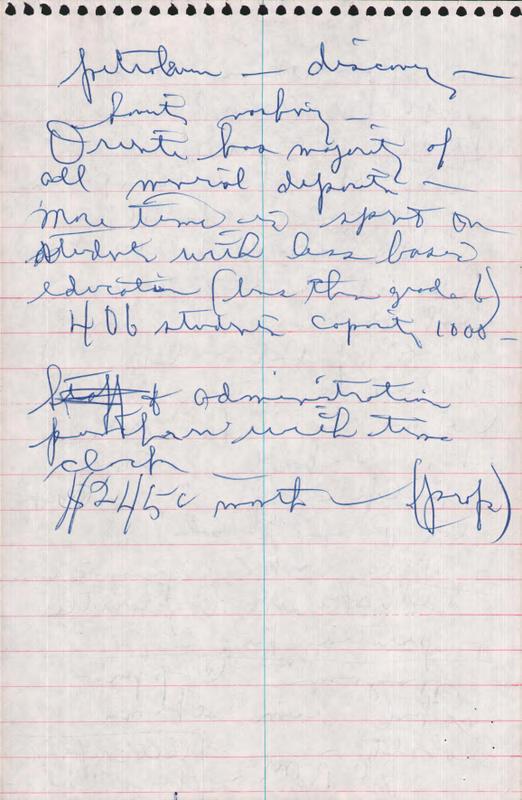 petroleum — discovery —
working —
Oriente has majority of
all mineral deposits —
More time is spent on
students with less basic
education (less than grade 6)
406 students capacity 1000 —
Staff & administration
with time
clock
$245 month (prof)